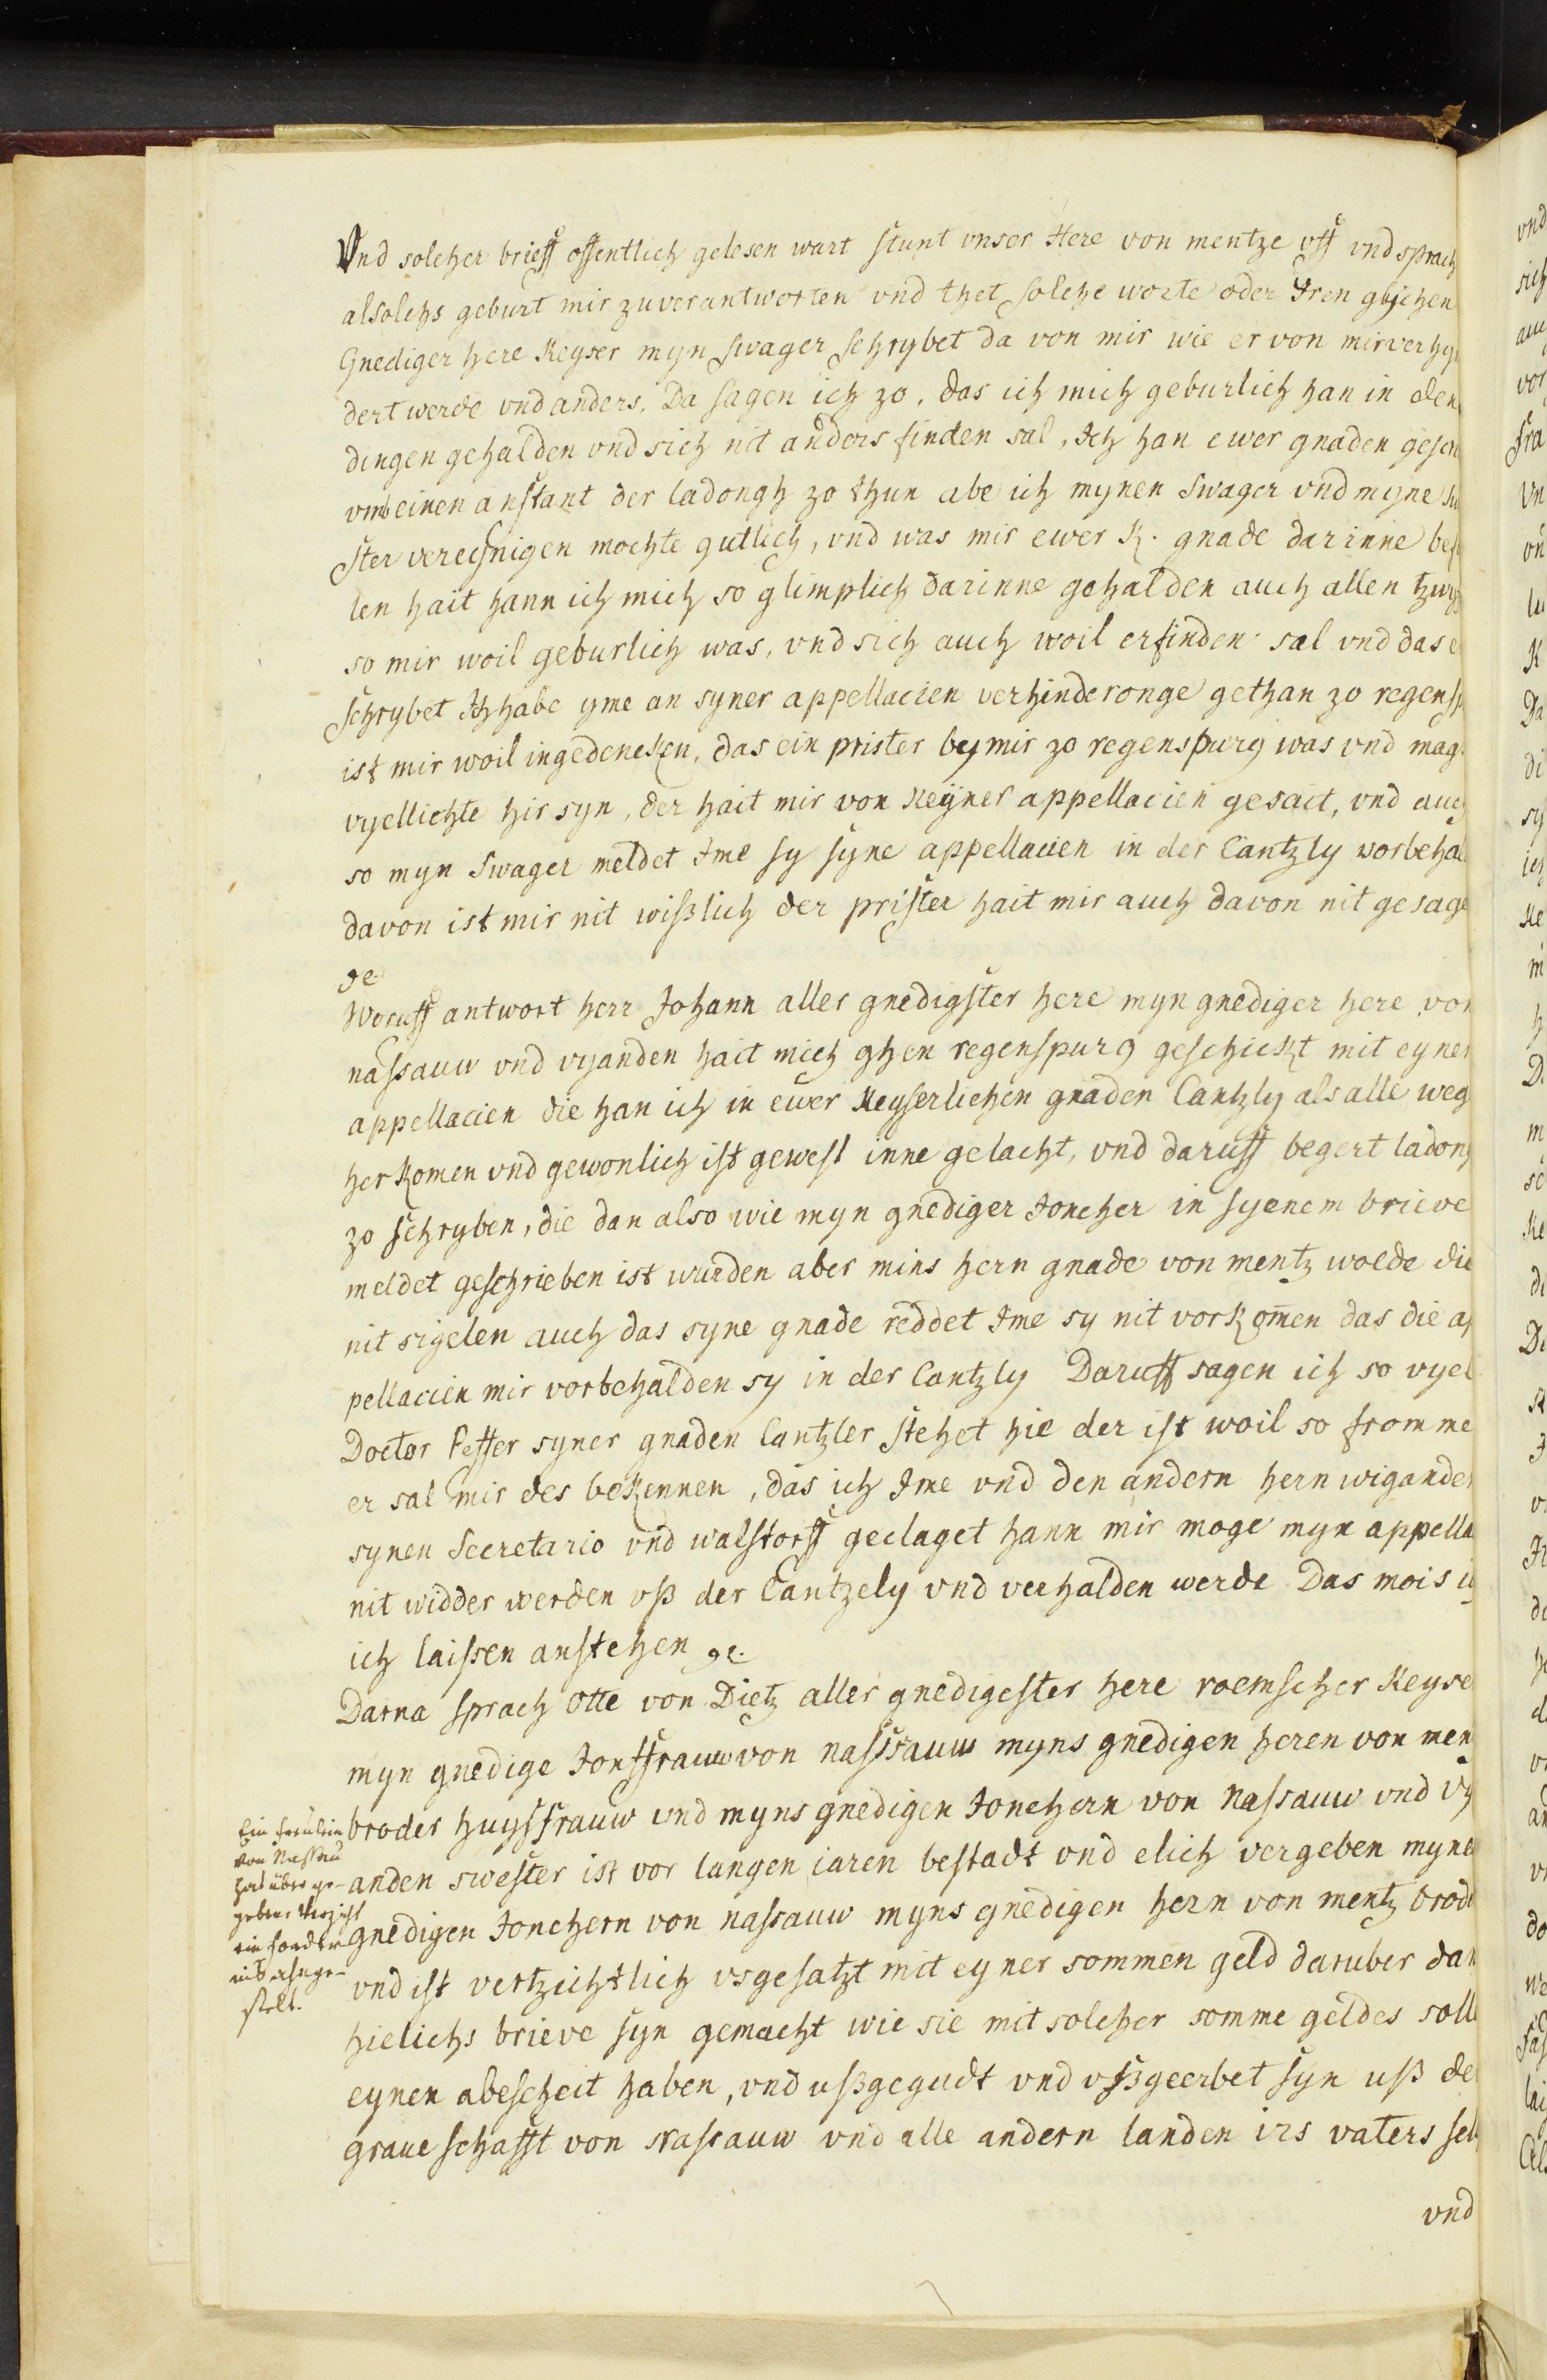 Vnd solcher brieff offentlich gelesen wart stunt vnser Here von mentze vff vnd sprach
alsolchs geburt mir zuverantworten vnd thet solche worte oder Iren glychen
Gnediger here Keyser myn swager schrybet da von mir wie er von mir verhyn
dert werde vnd anders, Da sagen ich zo, das ich mich geburlich han in den
dingen gehalden vnd sich nit anders finden sal, Ich han ewer gnaden
vmb einen anstant der ladongh zo thun abe ich mynen Swager vnd myne
ster vereynigen mochte gutlich, vnd was mir ewer K. gnade darinne
len hait hann ich mich so glimplich darinne gehalden auch allen
so mir woil geburlich was, vnd sich auch woil erfinden sal vnd das
schrybet Ich habe yme an syner appellacien verhinderonge gethan zo
ist mir woil ingedencken, das ein prister by mir zo regenspurg was vnd mag
vyellichte hir syn, der hait mir von Keyner appellacien gesait, vnd auch
so myn Swager meldet Ime sy syne appellacien in der Cantzly vorbehal
davon ist mir nit wißlich der prister hait mir auch davon nit gesage
ꝛc
Woruff antwort herr Johann aller gnedigster here myn gnediger here von
nassauw vnd vyanden hait mich ghen regenspurg geschickt mit eyner
appellacien die han ich in ewer Keyserlichen gnaden Cantzly als alle weg
herkomen vnd gewonlich ist gewest inne gelacht, vnd daruff begert ladong
zo schryben, die dan also wie myn gnediger Joncher in syenem brieve
meldet geschrieben ist wurden aber mins hern gnade von mentz wolde die
nit sigelen auch das syne gnade reddet Ime sy nit vorkom̄en das die ap
pellacien mir vorbehalden sy in der Cantzly Daruff sagen ich so vyel
Doctor Peffer syner gnaden Cantzler stehet hie der ist woil so fromme
er sal mir des bekennen, das ich Ime vnd den andern hern wiganden
synen Secretario vnd walstorff geclaget hann mir moge myn appella
nit widder werden vß der Cantzely vnd verhalden werde Das mois ich
ich laissen anstehen ꝛc.
Darna sprach Otte von Dietz aller gnedigester here roemscher Keyser
myn gnedige Jonffrauw von nassauw myns gnedigen heren von men
broder huysfrauw vnd myns gnedigen Jonchern von Nassauw vnd Vy
anden swester ist vor langen iaren bestadt vnd elich vergeben myne
gnedigen Jonchern von nassauw myns gnedigen hern von mentz brod
vnd ist vertzichtlich vsgesatzt mit eyner sommen geld daruber dan
hielichs brieve syn gemacht wie sie mit solcher somme geldes soll
eynen abescheit haben, vnd ußgegudt vnd vßgeerbet syn uß de
graueschafft von Nassauw vnd alle andern landen irs vaters sel
vnd
Ein freulein
von Nassau
hat über ge-
gebene Verzicht